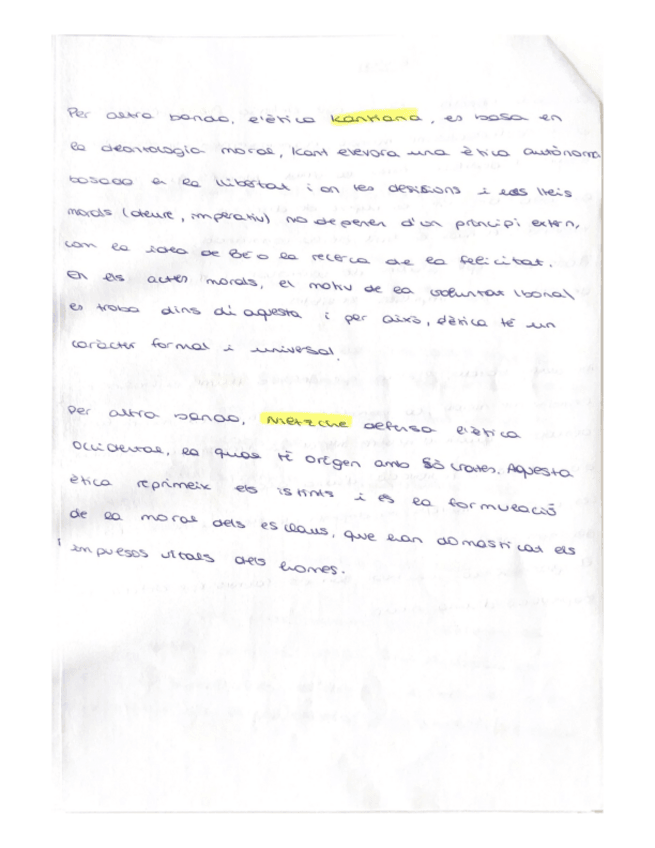 Per altra banda, l'ètica Kantiana, es basa en
la deontologia moral, Kant elevora una ètica autònoma
basada en la llibertat i on les desisions i les lleis
morals (deure, imperatiu) no depenen d'un principi extern,
com la idea de BÉ o la recerca de la felicitat.
En els actes morals, el motiu de la voluntat (bona)
es troba dins d'aquesta i per això, l'ètica té un
caràcter formal i universal.
Per altra banda, Nietzche defensa l'ètica
Occidental, la qual té origen amb Sòcrates. Aquesta
ètica reprimeix els istints i és la formulació
de la moral dels esclaus, que han domasticat els
impulsos vitals dels homes.